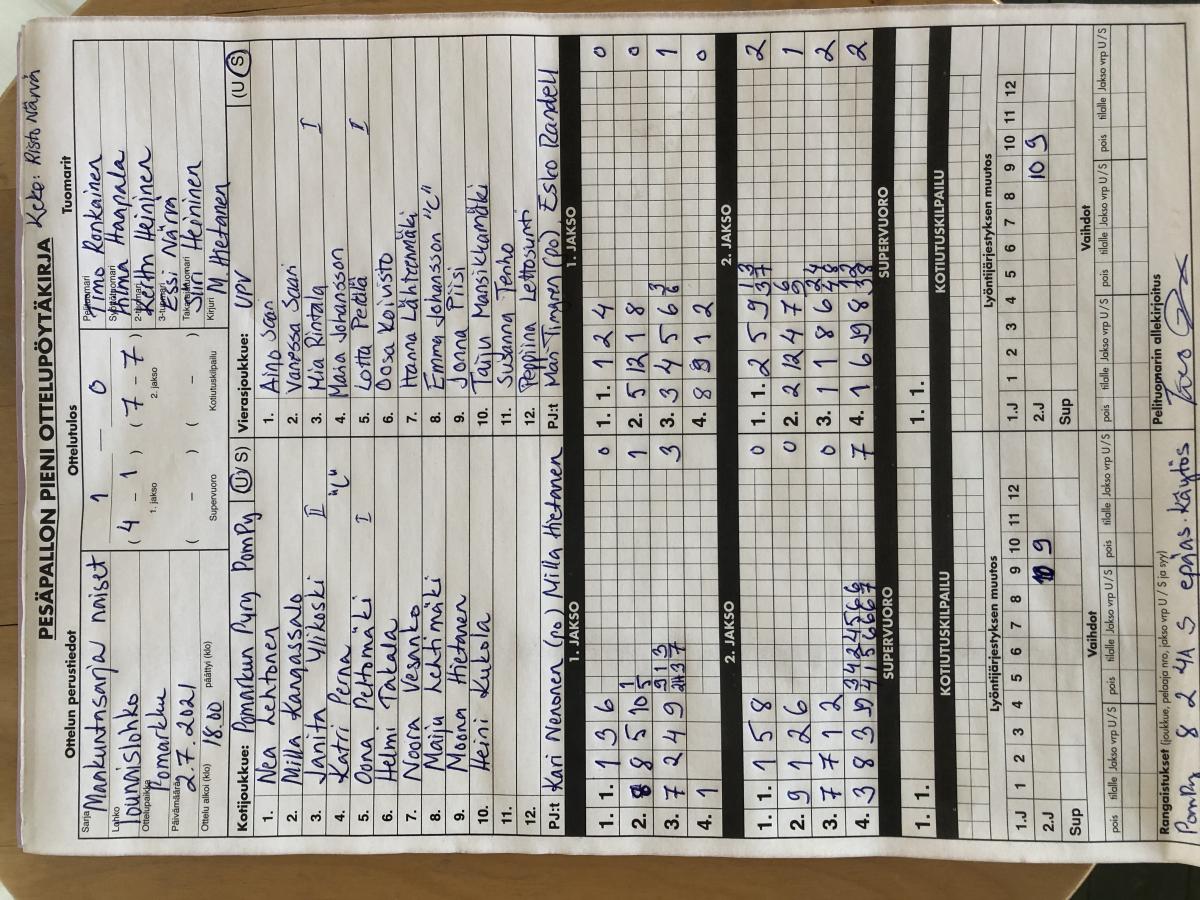 PESÄPALLON PIENI OTTELUPÖYTÄKIRJA Keko: Risto Närvä
Ottelun perustiedot
Sarja Maakuntasarja naiset
Lohko Lounaislohko
Ottelupaikka Pomarkku
Päivämäärä 2.7.2021
Ottelu alkoi (klo) 18.00 päättyi (klo)
Ottelutulos
1 — 0
( 4 – 1 ) ( 7 – 7 )
1. jakso 2. jakso
( – ) ( – )
Supervuoro Kotiutuskilpailu
Tuomarit
Pelituomari Timo Ronkainen
Syöttötuomari Haapala
2-tuomari Kerttu Heininen
3-tuomari Essi Närvä
Takatuomari Siiri Heininen
Kirjuri M. Hietanen
Kotijoukkue: Pomarkun Pyry PomPy (U/S)
1. Nea Lehtonen
2. Milla Kangassalo
3. Janita Ylikoski II
4. Katri Perna
5. Oona Peltomäki I "C"
6. Helmi Takala
7. Noora Vesanko
8. Maiju Lehtimäki
9. Moona Hietanen
10. Heini Lukola
11.
12.
PJ:t Kari Nenonen (po) Milla Hietanen
Vierasjoukkue: UPV (U/S)
1. Aino Saari
2. Vanessa Saari
3. Mia Rintala I
4. Maria Johansson
5. Lotta Peltola I
6. Oosa Koivisto
7. Hanna Lähteenmäki
8. Emma Johansson "C"
9. Jonna Piisi
10. Taija Mansikkamäki
11. Susanna Tenho
12. Peppiina Lettosunti
PJ:t Mari Timgren (po), Esko Randell
1. JAKSO
1. 1. 1 3 6 0
2. 8 8 5 10 5 1 1
3. 7 2 4 9 3
4. 1
1. JAKSO
1. 1. 1 2 4 0
2. 5 12 1 8 0
3. 3 4 5 6 3 6 1
4. 8 9 1 2 0
2. JAKSO
1. 1. 1 5 8 0
2. 9 1 2 6 0
3. 7 7 1 2 0
4. 3 8 3 9 7
2. JAKSO
1. 1. 2 5 9 1 2
2. 2 12 4 7 6 9 1
3. 1 1 8 6 2
4. 1 6 9 8 2
SUPERVUORO
1. 1.
SUPERVUORO
1. 1.
KOTIUTUSKILPAILU
KOTIUTUSKILPAILU
Lyöntijärjestyksen muutos
1.J 1 2 3 4 5 6 7 8 9 10 11 12
2.J 10 9
Sup
Lyöntijärjestyksen muutos
1.J 1 2 3 4 5 6 7 8 9 10 11 12
2.J 10 9
Sup
Vaihdot
pois tilalle Jakso vrp U/S pois tilalle Jakso vrp U/S pois tilalle Jakso vrp U/S
Vaihdot
pois tilalle Jakso vrp U/S pois tilalle Jakso vrp U/S pois tilalle Jakso vrp U/S
Rangaistukset (joukkue, pelaaja nro, jakso vrp U / S ja syy)
PomPy 8 2 4A S epäas. käytös
Pelituomarin allekirjoitus